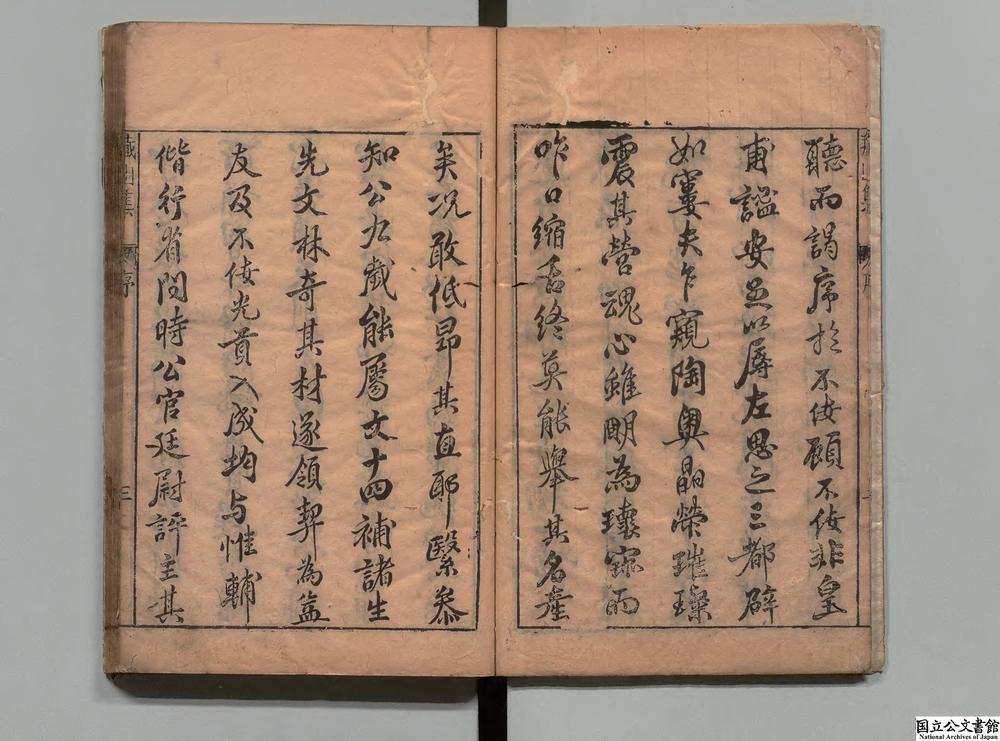 聽而謁序於不佞顧不佞非皇
甫謐安足以辱左思之三都辟
如寠夫乍窺陶奧晶榮璀璨
震其營魂心雖明為瓌寶而
咋口縮舌終莫能舉其名產
矣况敢低昂其直耶繄叅
知公九歲能屬文十四補諸生
先文林奇其材遂領契為益
友及不佞充貢入成均与惟輔
偕行省問時公官廷尉評主其
序
三
国立公文書館
National Archives of Japan